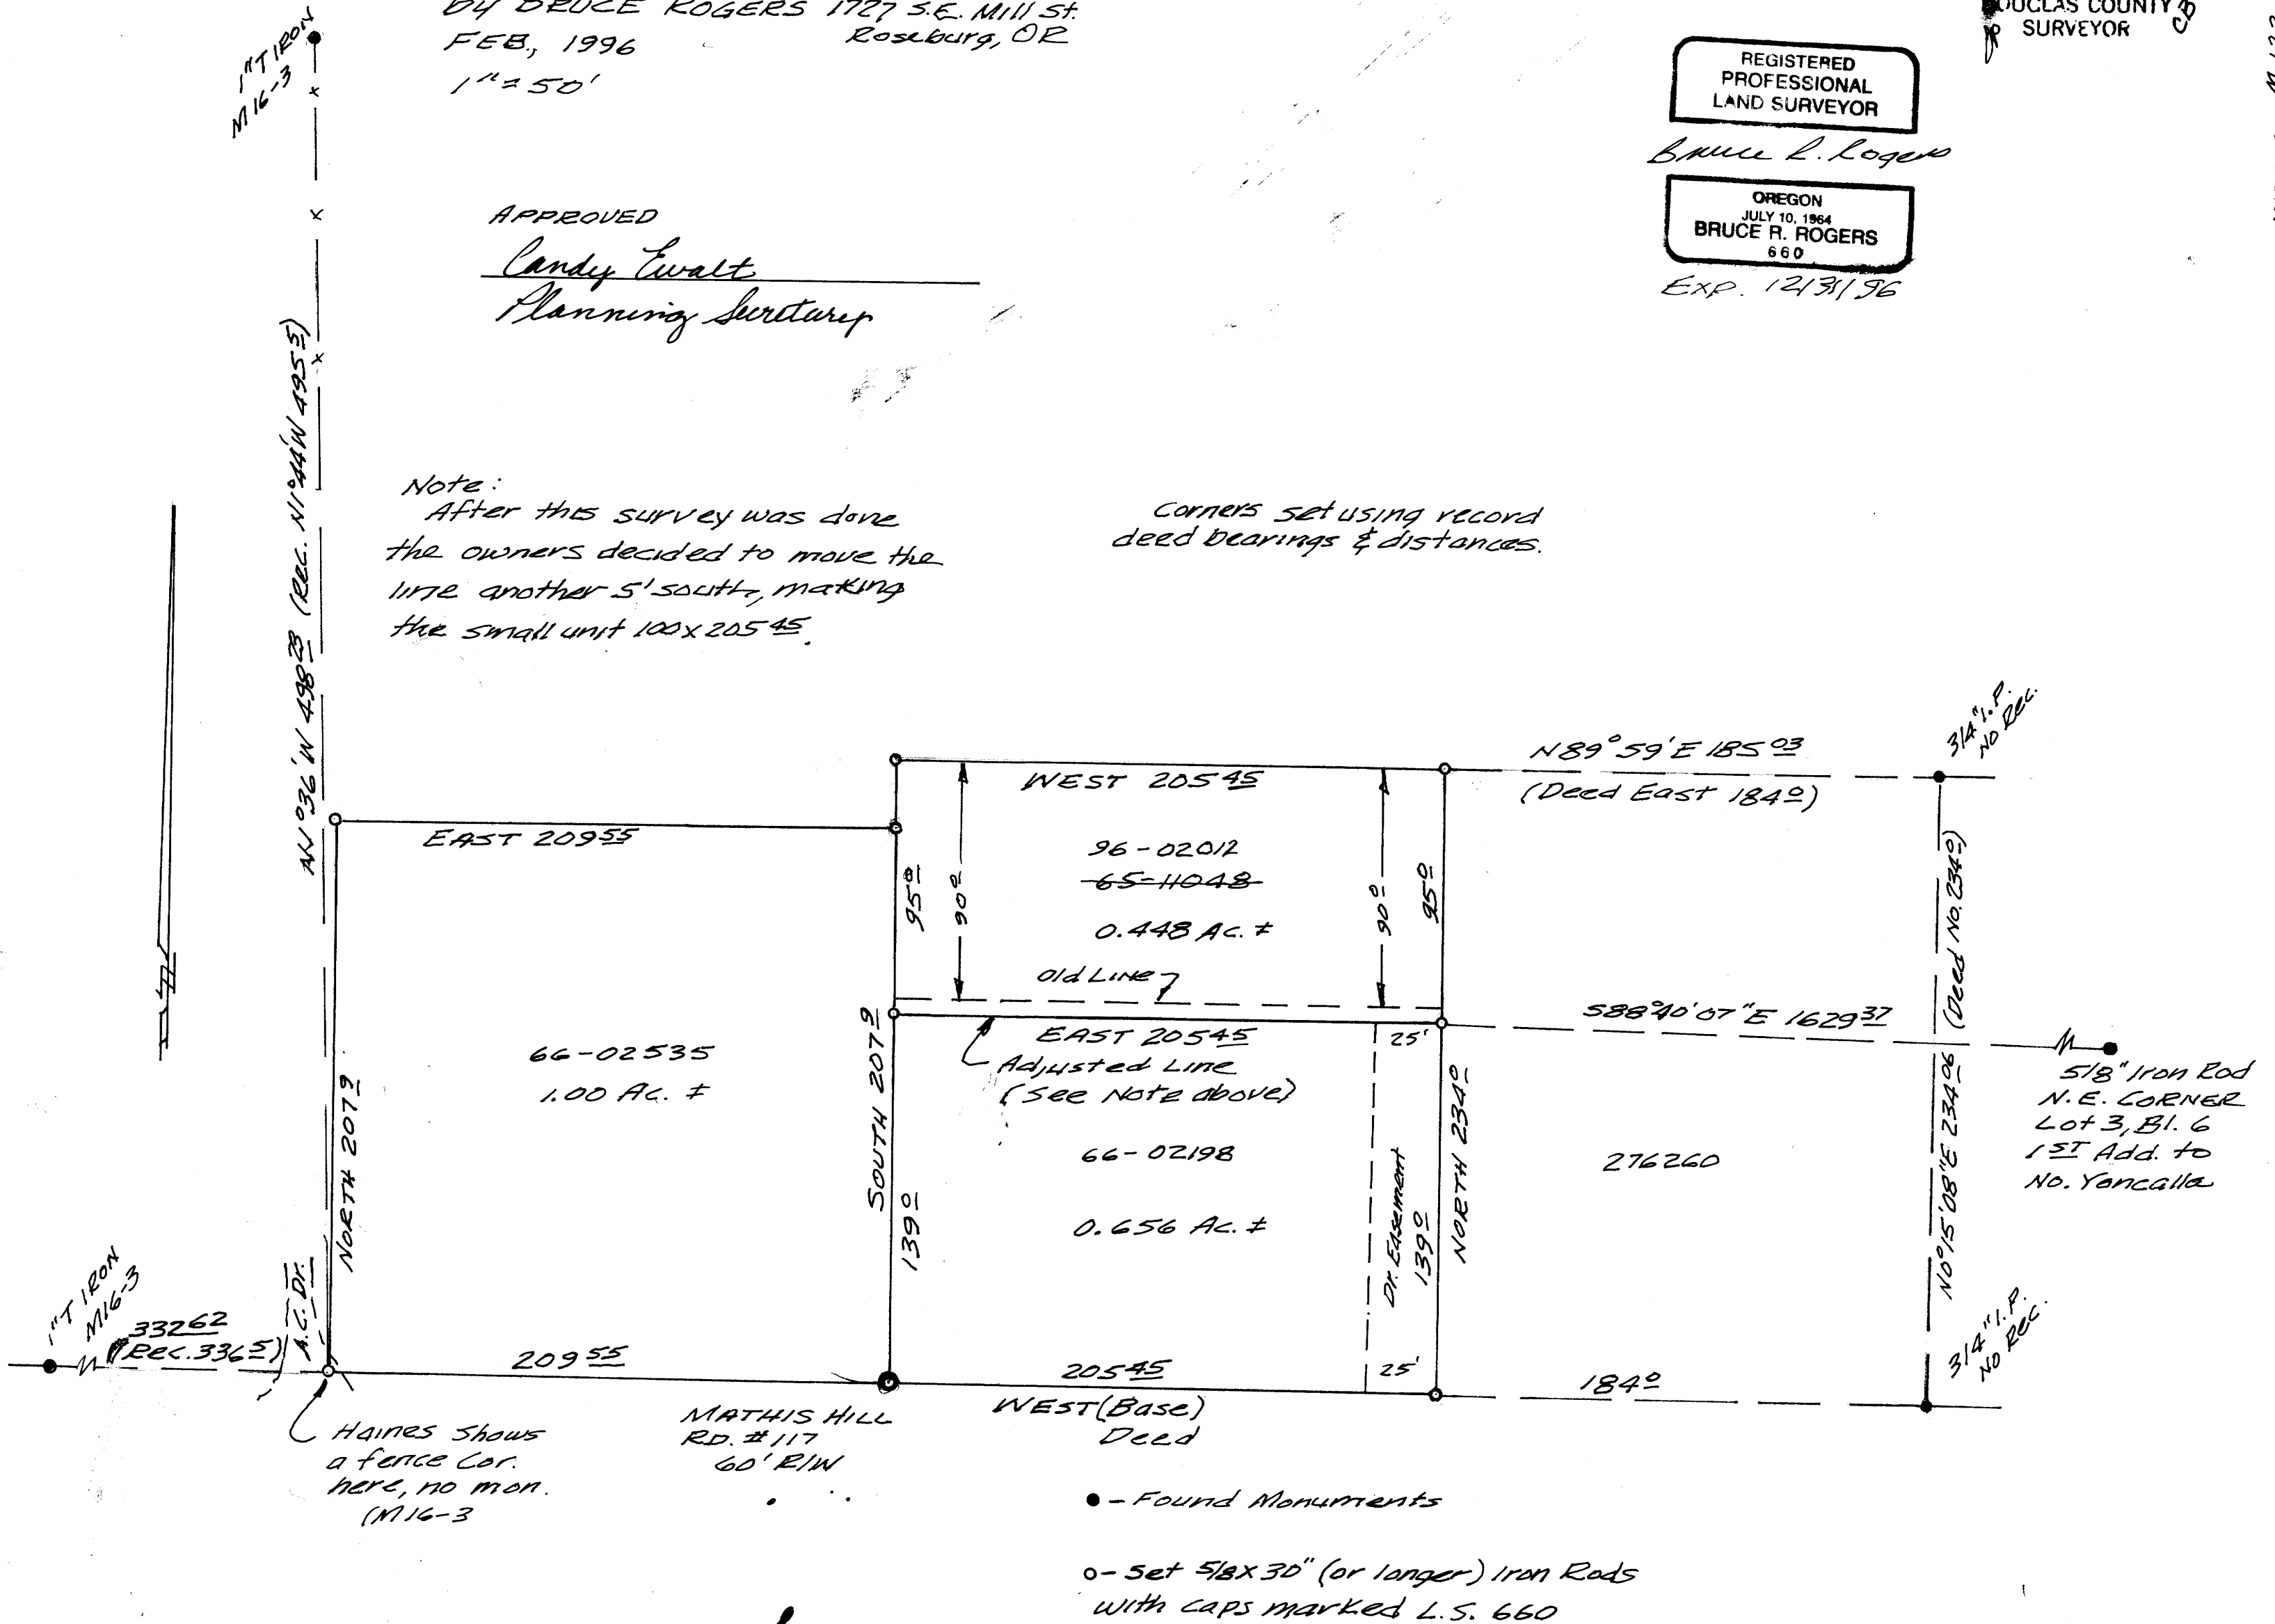 by BRUCE ROGERS 1727 S.E. Mill St.
Roseburg, OR
FEB., 1996
1" = 50'
DOUGLAS COUNTY
SURVEYOR
REGISTERED
PROFESSIONAL
LAND SURVEYOR
Bruce R. Rogers
OREGON
JULY 10, 1964
BRUCE R. ROGERS
660
Exp. 12/31/96
1" T IRON
M16-3
APPROVED
Candy Ewalt
Planning Secretary
N1°36'W 498 23 (Rec. N1°44'W 495 5)
Note:
After this survey was done
the owners decided to move the
line another 5' south, making
the small unit 100 x 205 45.
Corners set using record
deed bearings & distances.
3/4" I.P.
NO REC.
N89°59'E 185 03
(Deed East 184 0)
WEST 205 45
EAST 209 55
96-02012
65-11048
0.448 Ac. ±
95 0
90 0
90 0
95 0
Old Line
EAST 205 45
25'
Adjusted Line
(See Note above)
S88°40'07"E 1629 37
5/8" Iron Rod
N.E. CORNER
Lot 3, Bl. 6
1ST Add. to
No. Yoncalla
66-02535
1.00 Ac. ±
NORTH 207 9
SOUTH 207 9
139 0
66-02198
0.656 Ac. ±
Dr. Easement
139 0
NORTH 234 0
276260
N0°15'08"E 234 06 (Deed No. 234 0)
1" T IRON
M16-3
332 62
(Rec. 336 5)
A.C. Dr.
209 55
205 45
25'
184 0
3/4" I.P.
NO REC.
WEST (Base)
Deed
MATHIS HILL
RD. #117
60' R/W
Haines shows
a fence Cor.
here, no mon.
(M16-3
● - Found Monuments
o - Set 5/8 x 30" (or longer) Iron Rods
with caps marked L.S. 660